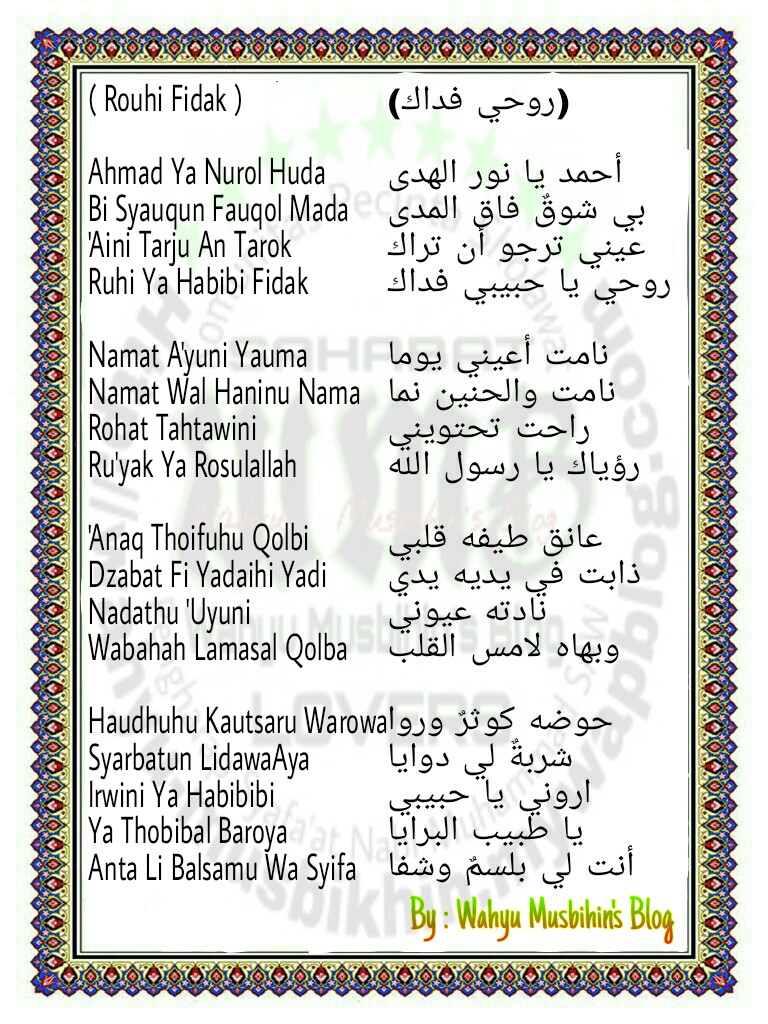 ( Rouhi Fidak ) (روحي فداك)
Ahmad Ya Nurol Huda أحمد يا نور الهدى
Bi Syauqun Fauqol Mada بي شوقٌ فاق المدى
'Aini Tarju An Tarok عيني ترجو أن تراك
Ruhi Ya Habibi Fidak روحي يا حبيبي فداك
Namat A'yuni Yauma نامت أعيني يوما
Namat Wal Haninu Nama نامت والحنين نما
Rohat Tahtawini راحت تحتويني
Ru'yak Ya Rosulallah رؤياك يا رسول الله
'Anaq Thoifuhu Qolbi عانق طيفه قلبي
Dzabat Fi Yadaihi Yadi ذابت في يديه يدي
Nadathu 'Uyuni نادته عيوني
Wabahah Lamasal Qolba وبهاه لامس القلب
Haudhuhu Kautsaru Warowa حوضه كوثرٌ وروا
Syarbatun LidawaAya شربةٌ لي دوايا
Irwini Ya Habibibi اروني يا حبيبي
Ya Thobibal Baroya يا طبيب البرايا
Anta Li Balsamu Wa Syifa أنت لي بلسمٌ وشفا
By : Wahyu Musbihin's Blog
Wahyu Musbihin's Blog
LOVERS